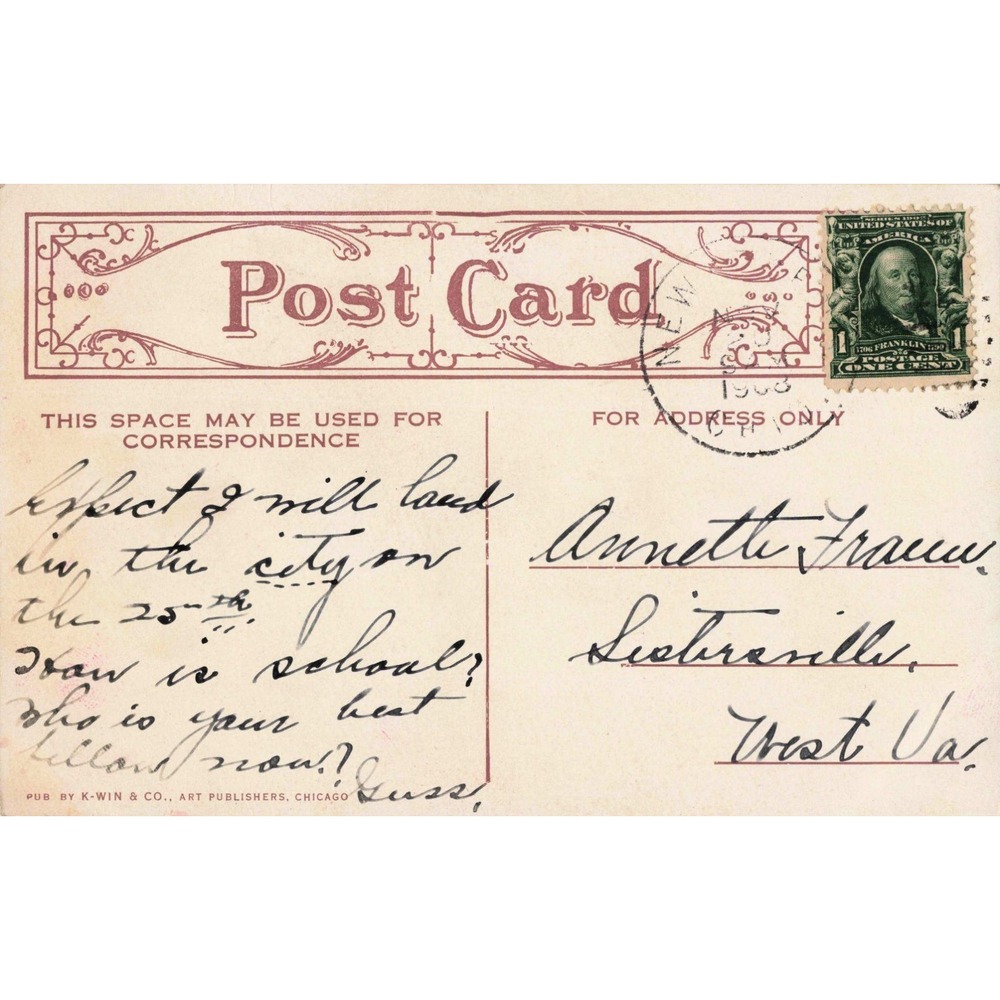 Post Card
SERIES 1902
UNITED STATES OF
AMERICA
1 FRANKLIN 1
POSTAGE
ONE CENT
NEW
1908
THIS SPACE MAY BE USED FOR
CORRESPONDENCE
FOR ADDRESS ONLY
Expect I will land
in the city on
the 25th
How is school?
Who is your best
fellow now?
Guss.
Annette
Sistersville,
West Va.
PUB BY K-WIN & CO., ART PUBLISHERS, CHICAGO